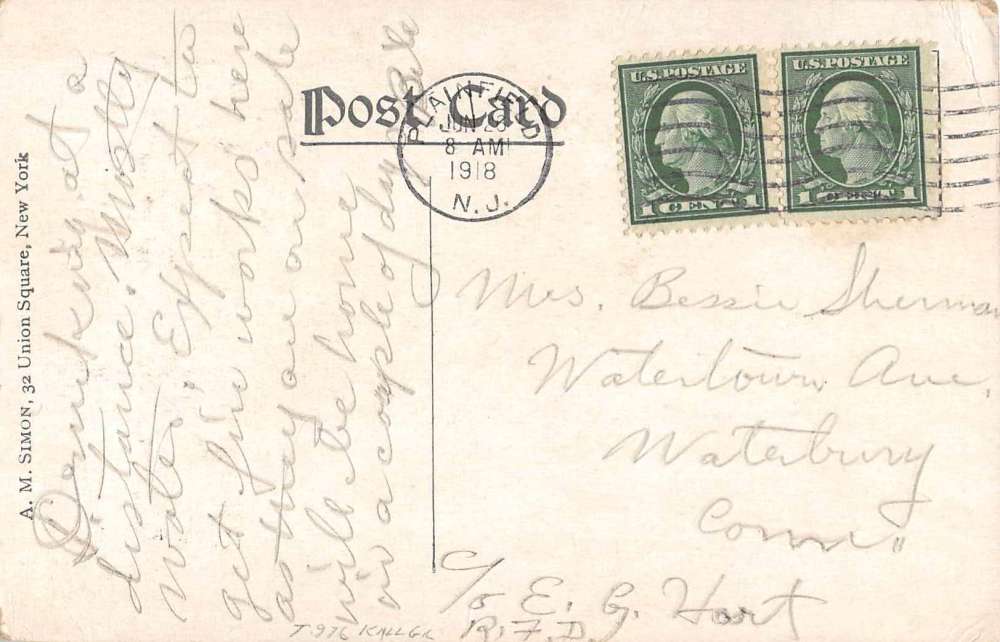 Post Card
PLAINFIELD
JUN 28
8 AM
1918
N. J.
U.S. POSTAGE
1 CENT 1
U.S. POSTAGE
1 CENT 1
A. M. SIMON, 32 Union Square, New York
at a
distance. Mostly
water. Expect to
get fire works here
as they are on sale
will be home
in a couple of days
Mrs. Bessie Sherman
Watertown Ave.
Waterbury
Conn.
c/o E. G. Hart
R. F. D.
T976